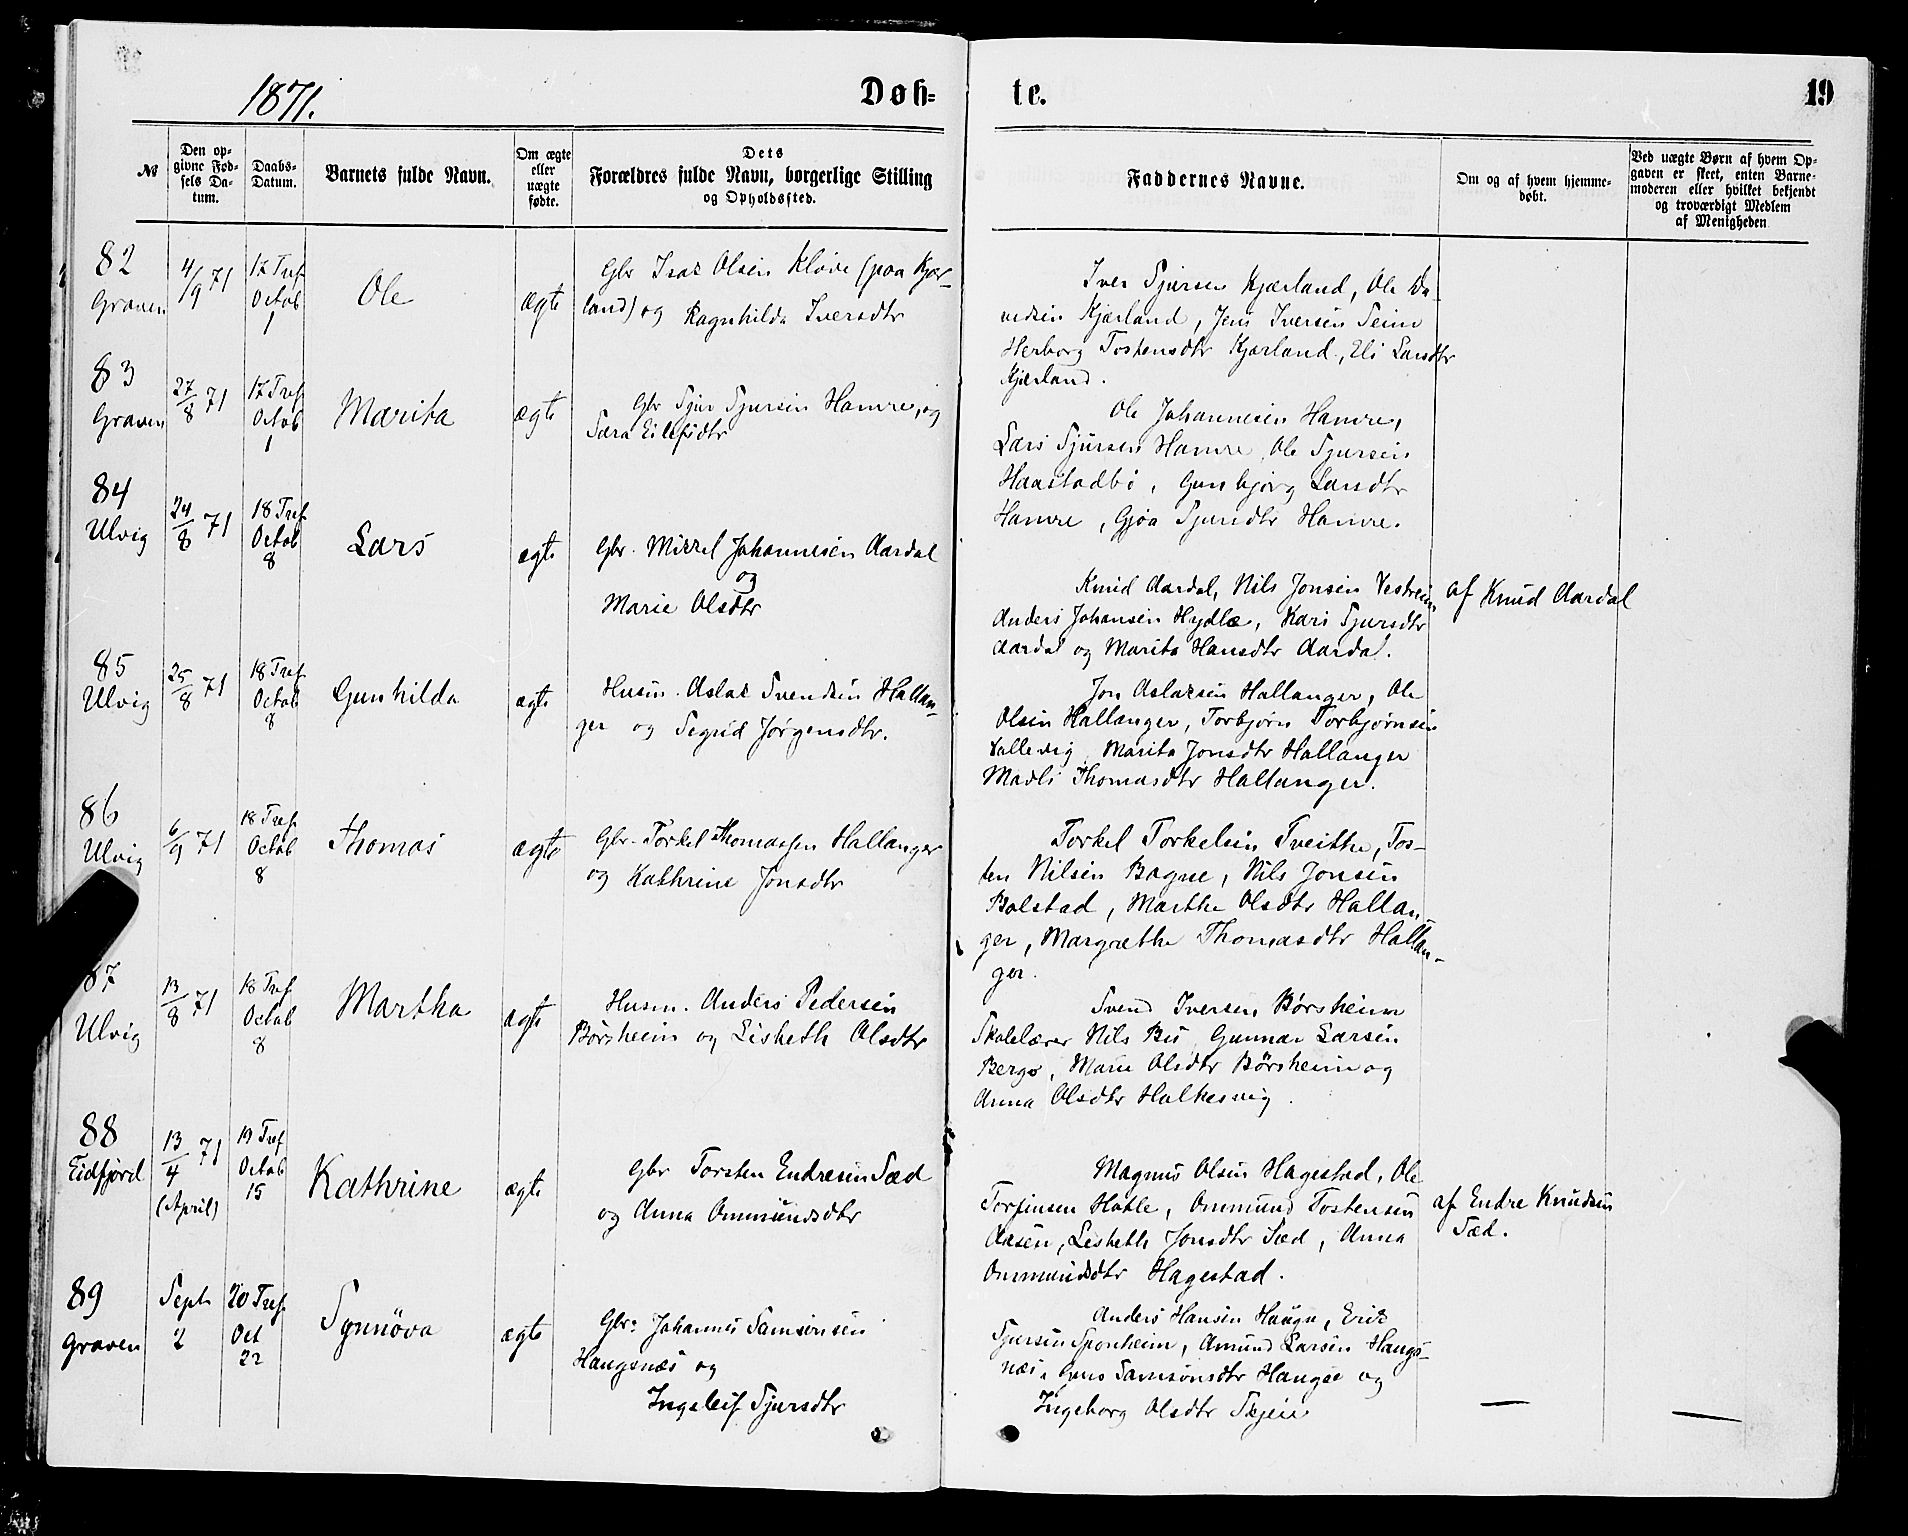 1871.
Døb-
te.
19
№
Den op-
givne Fød-
sels Da-
tum.
Daabs-
Datum.
Barnets fulde Navn.
Om ægte
eller
uægte
fødte.
Dets
Forældres fulde Navn, borgerlige Stilling
og Opholdssted.
Faddernes Navne.
Om og af hvem hjemme-
døbt.
Ved uægte Børn af hvem Op-
gaven er skeet, enten Barne-
moderen eller hvilket bekjendt
og troværdigt Medlem
af Menigheden
82
Graven
4/9 71
17 Tref
Octob
1
Ole
ægte
Gbr Isak Olsen Kløve (paa Kjær-
land) og Ragnhilda Iversdtr
Iver Sjursen Kjærland, Ole Da-
vidsen Kjærland, Jens Iversen Seim
Herborg Tostensdtr Kjærland, Eli Larsdtr
Kjærland.
83
Graven
27/8 71
17 Tref
Octob
1
Marita
ægte
Gbr Sjur Sjursen Hamre, og
Sara Eilefsdtr
Ole Johannesen Hamre,
Lars Sjursen Hamre, Ole Sjursen
Haastadbø, Gunbjørg Larsdtr
Hamre, Gjøa Sjursdtr Hamre.
84
Ulvig
24/8 71
18 Tref
Octob
8
Lars
ægte
Gbr. Mikkel Johannesen Aardal
og
Marie Olsdtr
Knud Aardal, Nils Jonsen Vestreim
Anders Johansen Hydle, Kari Sjursdtr
Aardal og Marita Hansdtr Aardal.
af Knud Aardal
85
Ulvig
25/8 71
18 Tref
Octob
8
Gunhilda
ægte
Husm. Aslak Svendsen Hallan-
ger og Segrid Jørgensdtr.
Jon Aslaksen Hallanger, Ole
Olsen Hallanger, Torbjørn Torbjørnsen
Vallevig, Marita Jonsdtr Hallanger
Madli Thomasdtr Hallanger.
86
Ulvig
6/9 71
18 Tref
Octob
8
Thomas
ægte
Gbr. Torkel Thomassen Hallanger
og Kathrine Jonsdtr
Torkel Torkelsen Tveithe, Tos-
ten Nilsen Bagne, Nils Jonsen
Bolstad, Marthe Olsdtr Hallan-
ger, Margrethe Thomasdtr Hallan-
ger.
87
Ulvig
13/8 71
18 Tref
Octob
8
Martha
ægte
Husm. Anders Pedersen
Børsheim og Lisbeth Olsdtr
Svend Iversen Børsheim
Skolelærer Nils Bu, Gunnar Larsen
Berge, Marie Olsdtr Børsheim og
Anna Olsdtr Halkesvig.
88
Eidfjord
13/4 71
(April)
19 Tref
Octob
15
Kathrine
ægte
Gbr Torsten Endresen Sæd
og Anna Ommundsdtr
Magnus Olsen Hagestad, Ole
Torfinsen Hotle, Ommund Tostensen
Aasen, Lisbeth Jonsdtr Sæd, Anna
Ommundsdtr Hagestad.
af Endre Knudsen
Sæd.
89
Graven
Sept
2
20 Tref
Oct
22
Synnøva
ægte
Gbr. Johannes Samsonsen
Haugsnæs og
Ingeleif Sjursdtr
Anders Hansen Haugse, Erik
Sjursen Sponheim, Amund Larsen Haugs-
næs, Samsonsdtr Haugse og
Ingeborg Olsdtr Skjeie